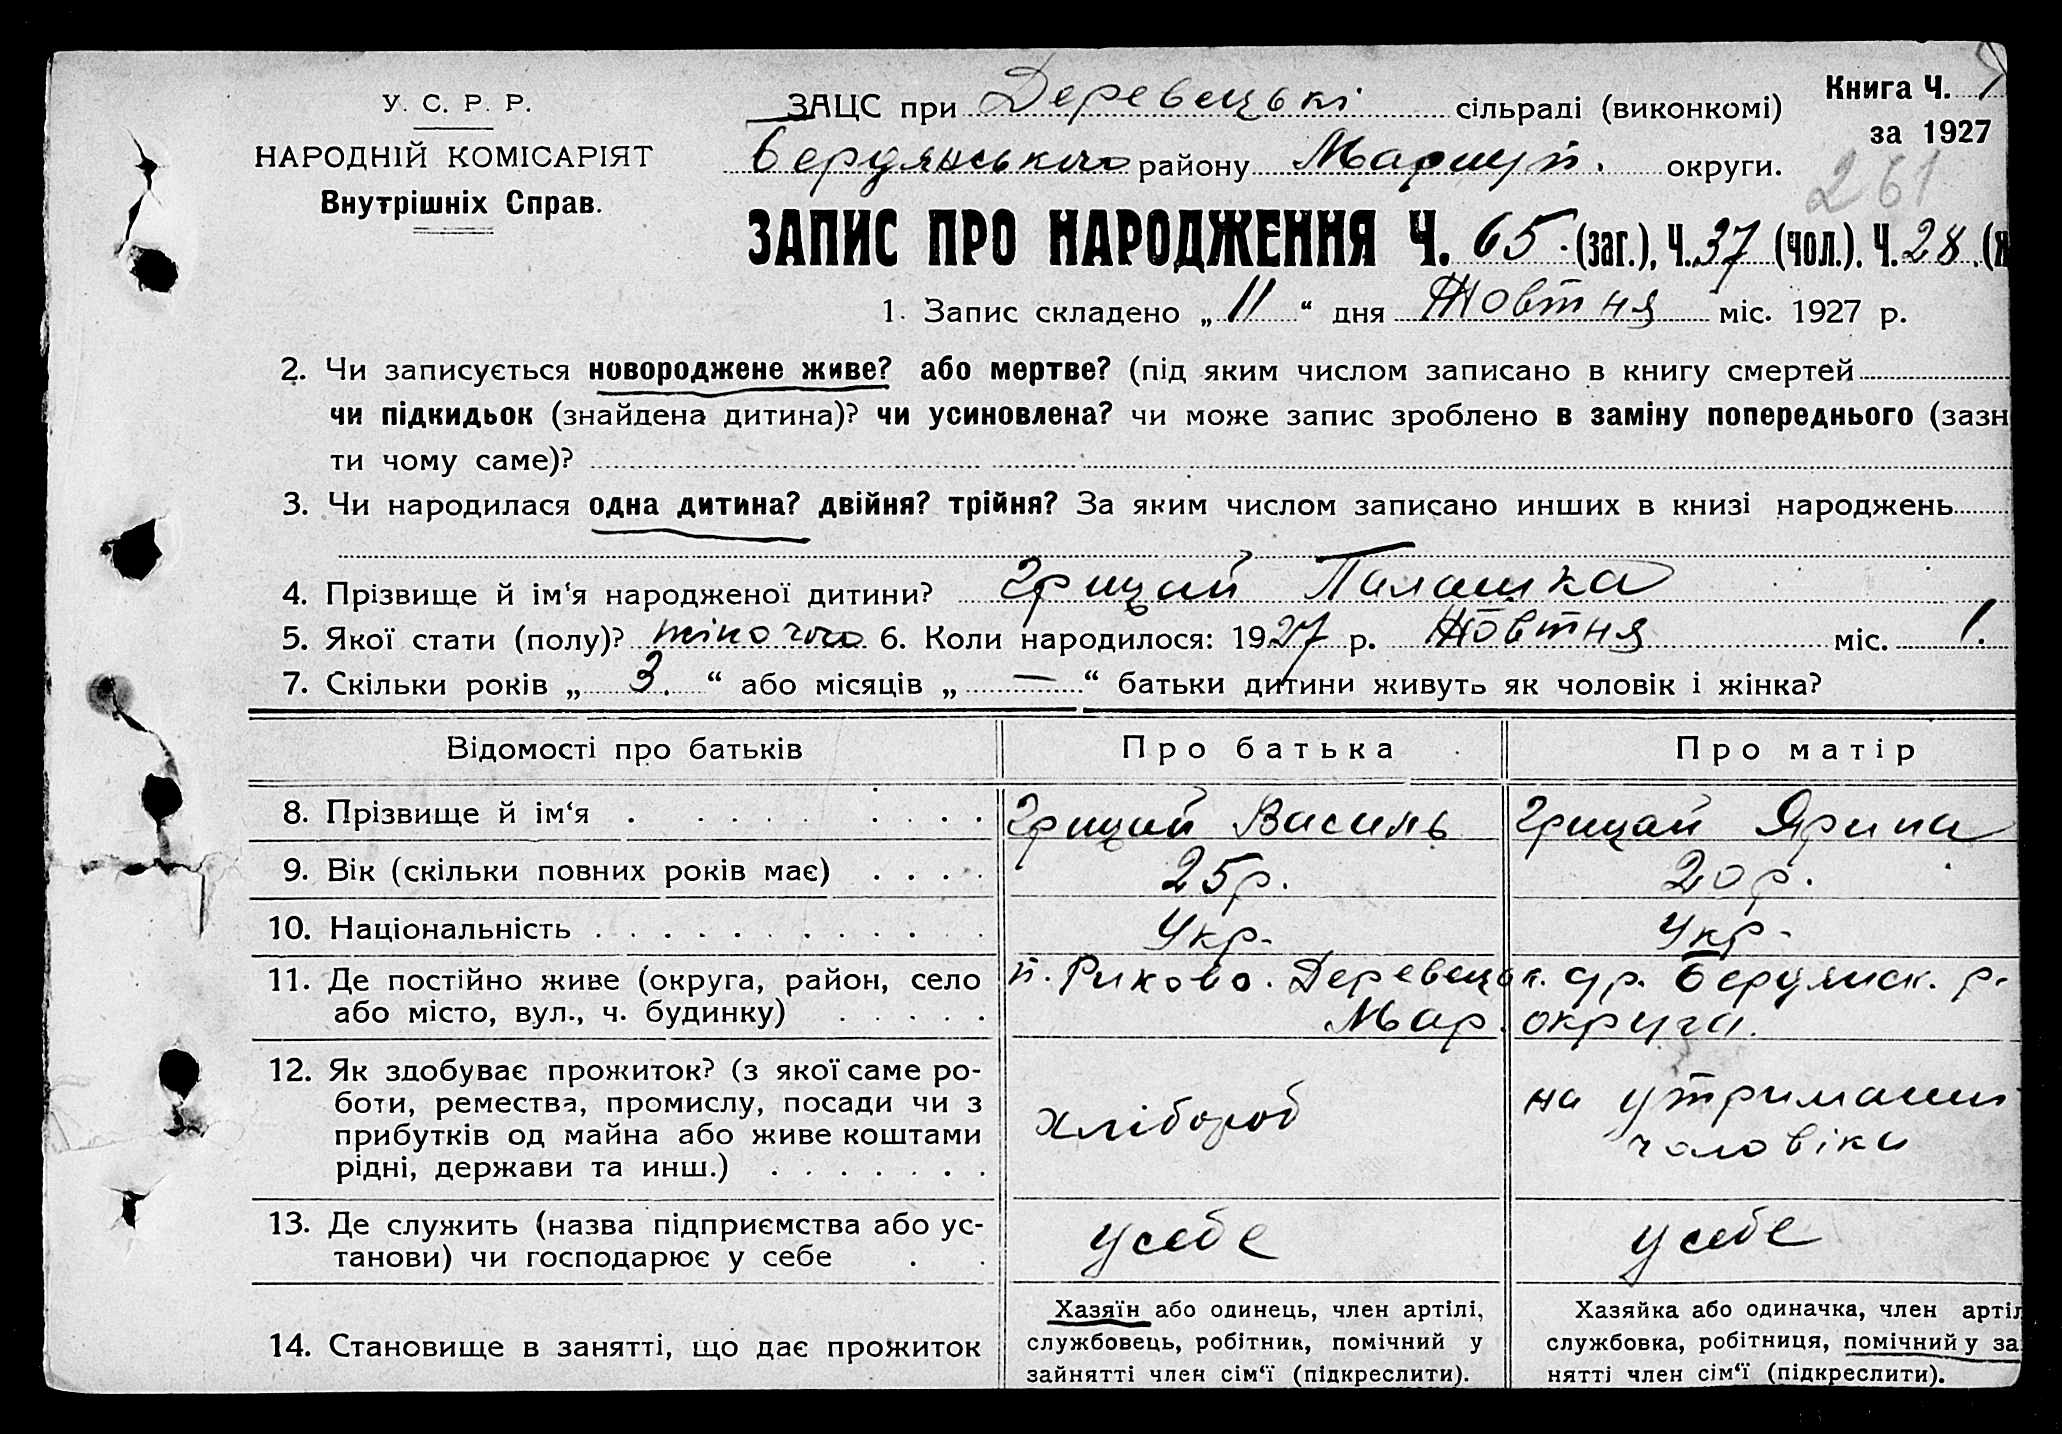 У. С. Р. Р.
НАРОДНІЙ КОМІСАРІЯТ
Внутрішніх Справ.
ЗАЦС при Деревецькі сільраді (виконкомі)
Бердянського району Маріуп. округи.
Книга Ч.
за 1927
261
ЗАПИС ПРО НАРОДЖЕННЯ Ч. 65 (заг.), Ч. 37 (чол.). Ч. 28 (ж
1. Запис складено „ 11 “ дня Жовтня міс. 1927 р.
2. Чи записується новороджене живе? або мертве? (під яким числом записано в книгу смертей
чи підкидьок (знайдена дитина)? чи усиновлена? чи може запис зроблено в заміну попереднього (зазн
ти чому саме)?
3. Чи народилася одна дитина? двійня? трійня? За яким числом записано инших в книзі народжень
4. Прізвище й ім‘я народженої дитини? Грицай Палашка
5. Якої стати (полу)? жіночого 6. Коли народилося: 1927 р. Жовтня міс. 1.
7. Скільки років „ 3. “ або місяців „ — “ батьки дитини живуть як чоловік і жінка?
Відомості про батьків Про батька Про матір
8. Прізвище й ім‘я Грицай Василь Грицай Ярина
9. Вік (скільки повних років має) 25 р. 20 р.
10. Національність Укр. Укр.
11. Де постійно живе (округа, район, село п. Риково. Деревецьк. с/р. Бердянск. р.
або місто, вул., ч. будинку) Мар. округа.
12. Як здобуває прожиток? (з якої саме ро-
боти, ремества, промислу, посади чи з
прибутків од майна або живе коштами
рідні, держави та инш.)
хлібороб
на утриманні
чоловіка
13. Де служить (назва підприємства або ус-
танови) чи господарює у себе
у себе у себе
14. Становище в занятті, що дає прожиток
Хазяїн або одинець, член артілі,
службовець, робітник, помічний у
зайнятті член сім‘ї (підкреслити).
Хазяйка або одиначка, член артіл
службовка, робітниця, помічний у за
нятті член сім‘ї (підкреслити).